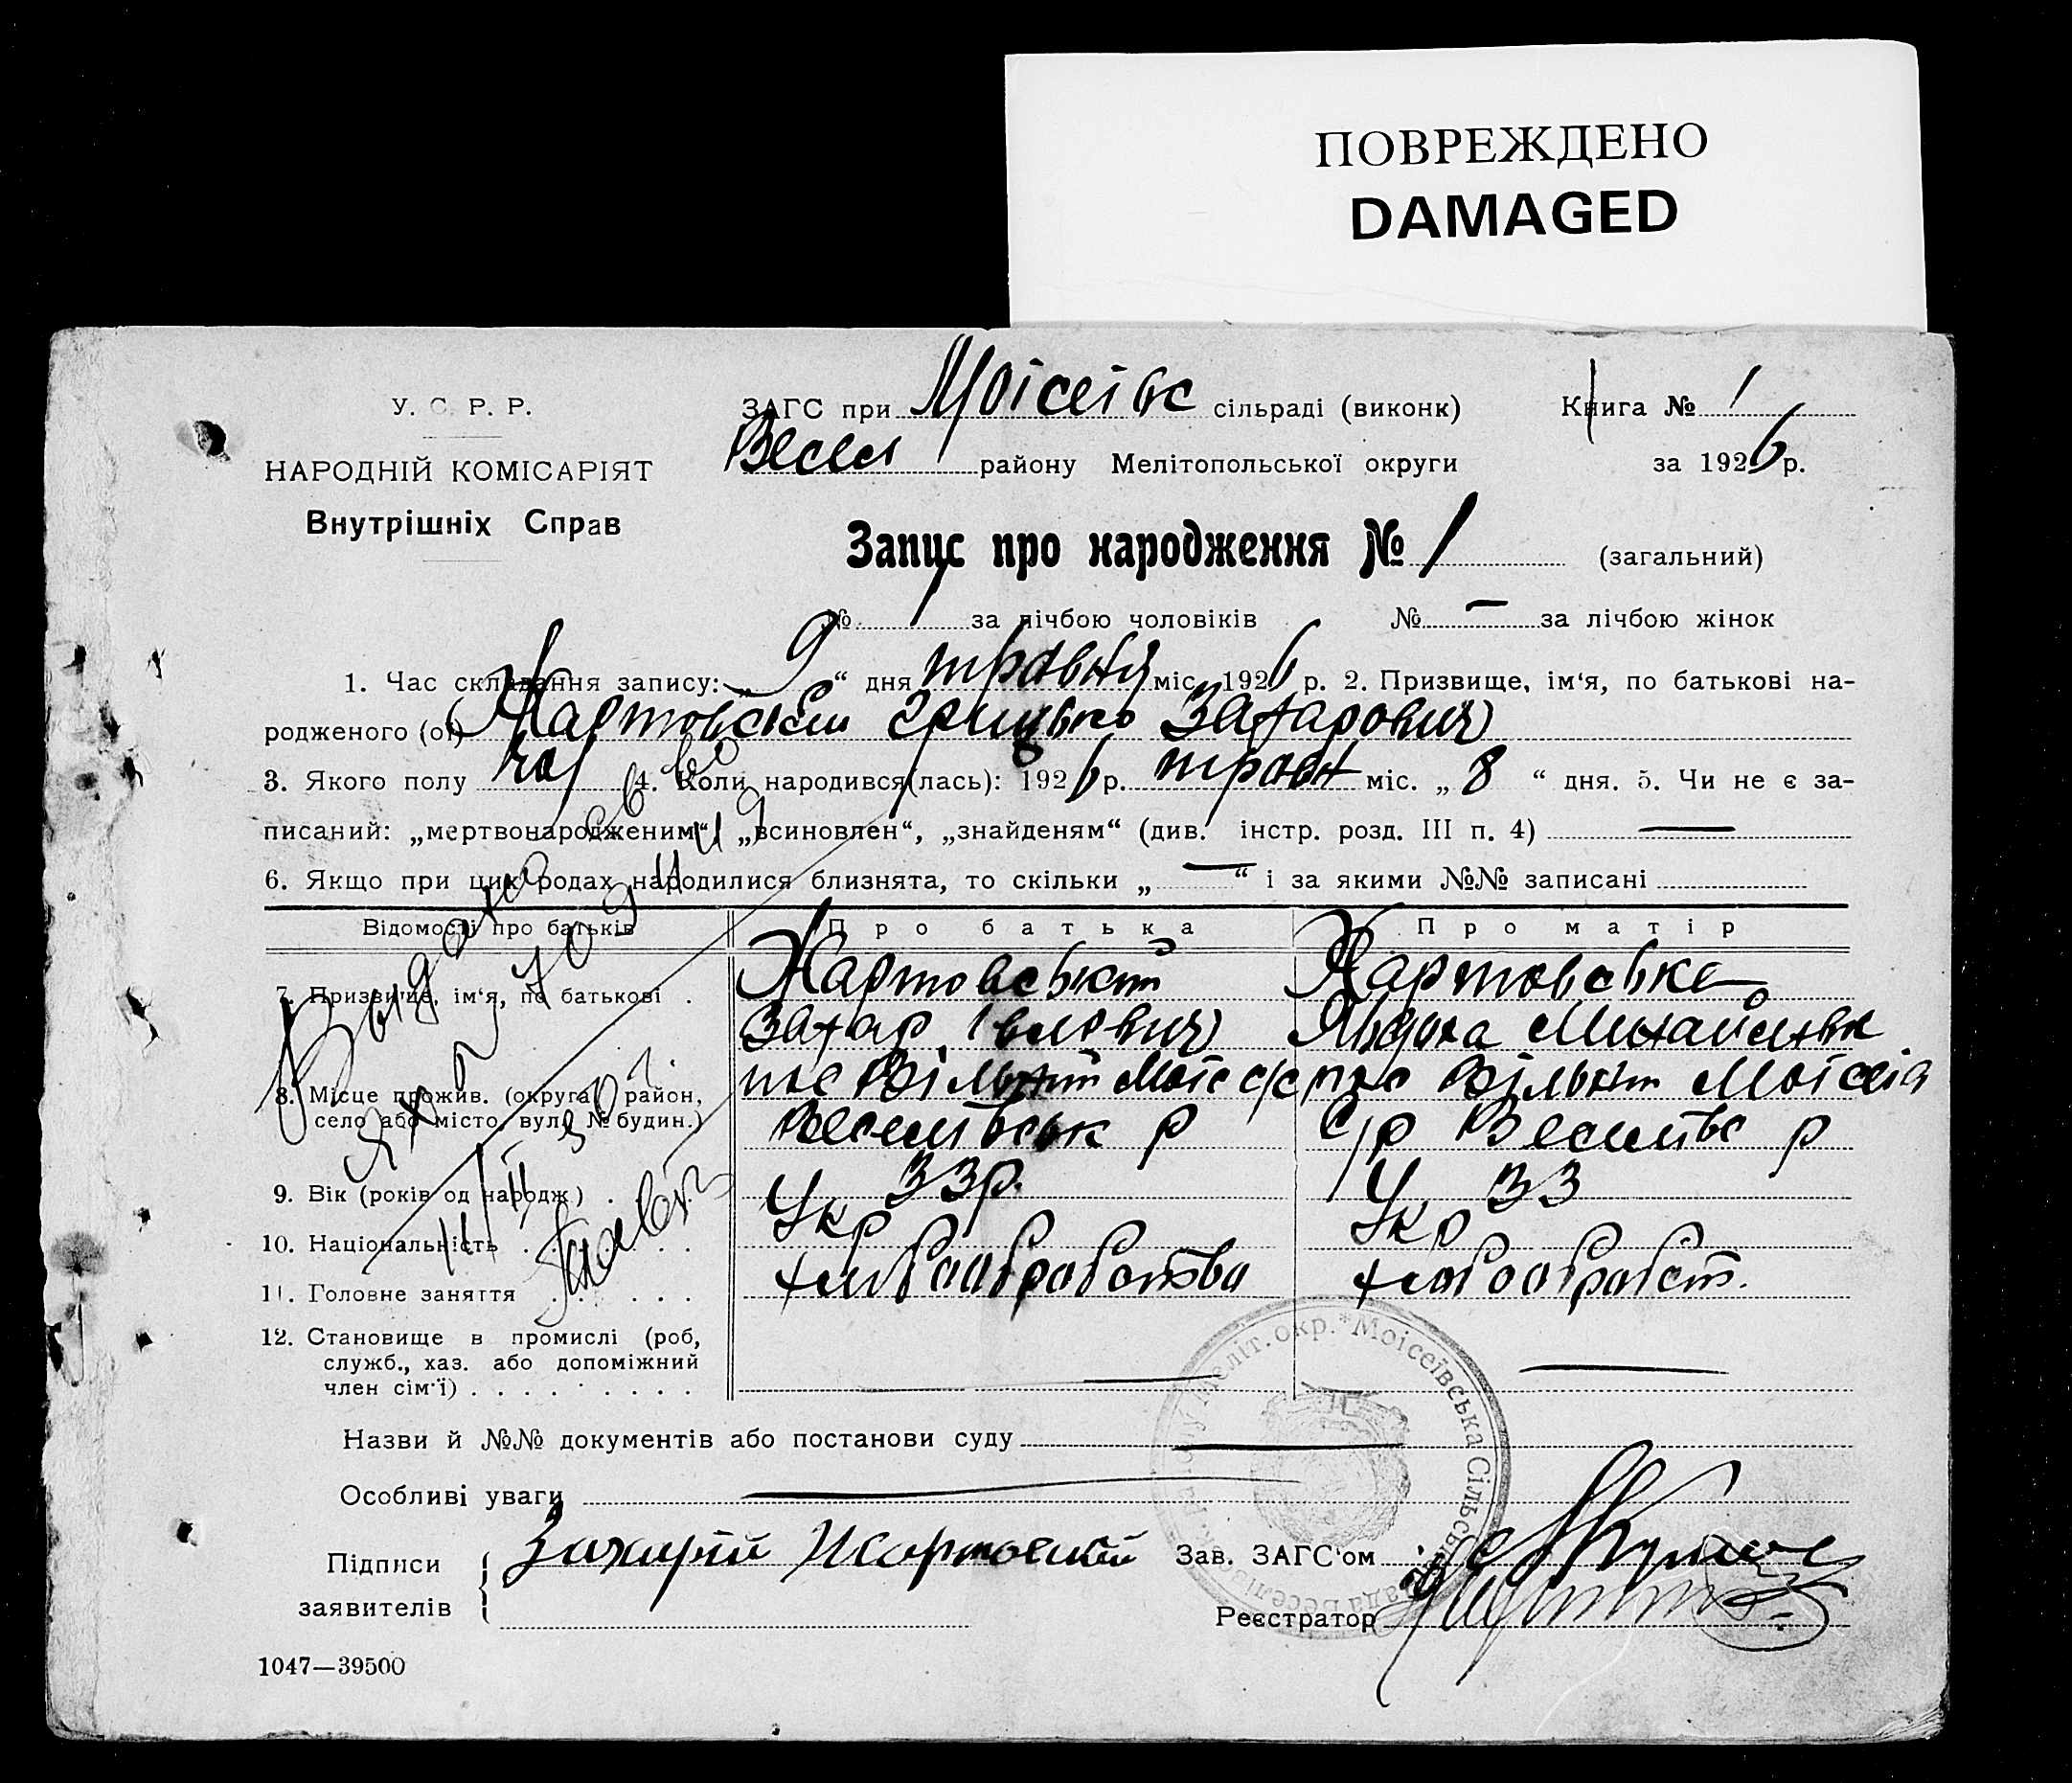 ПОВРЕЖДЕНО
DAMAGED
У. С. Р. Р.
НАРОДНІЙ КОМІСАРІЯТ
Внутрішніх Справ
ЗАГС при Моісеівс сільраді (виконк)
Весел району Мелітопольської округи
Книга № 1
за 1926 р.
Запис про народження № 1 (загальний)
№ 1 за лічбою чоловіків № — за лічбою жінок
1. Час складання запису: „9“ дня травня міс. 1926 р. 2. Призвище, ім‘я, по батькові на-
родженого (ої) Жартовский Грицько Захарович
3. Якого полу чол 4. Коли народився(лась): 1926 р. травн міс. „8“ дня. 5. Чи не є за-
писаний: „мертвонародженим“, „всиновлен“, „знайденям“ (див. інстр. розд. III п. 4) —
6. Якщо при цих родах народилися близнята, то скільки „—“ і за якими №№ записані
Відомості про батьків Про батька Про матір
7. Призвище, ім‘я, по батькові . Жартовський Жартовська
Захар Іванович Явдоха Михайлівн
8. Місце прожив. (округа, район, пос Вільний Моіс с/с пос Вільний Моісеів
село або місто, вул., № будин.) Веселівськ р с/р Веселівс р
9. Вік (років од народж.) 33р. 33
10. Національність Укр Укр
11. Головне заняття хлібообработва хлібообработ.
12. Становище в промислі (роб,
служб., хаз. або допоміжний
член сім‘ї) — —
Видано
Назви й №№ документів або постанови суду —
Особливі уваги —
Підписи
заявителів
Захарій Жартовский
Зав. ЗАГС‘ом
Реєстратор
Моісеівська Сільська Рада
1047—39500